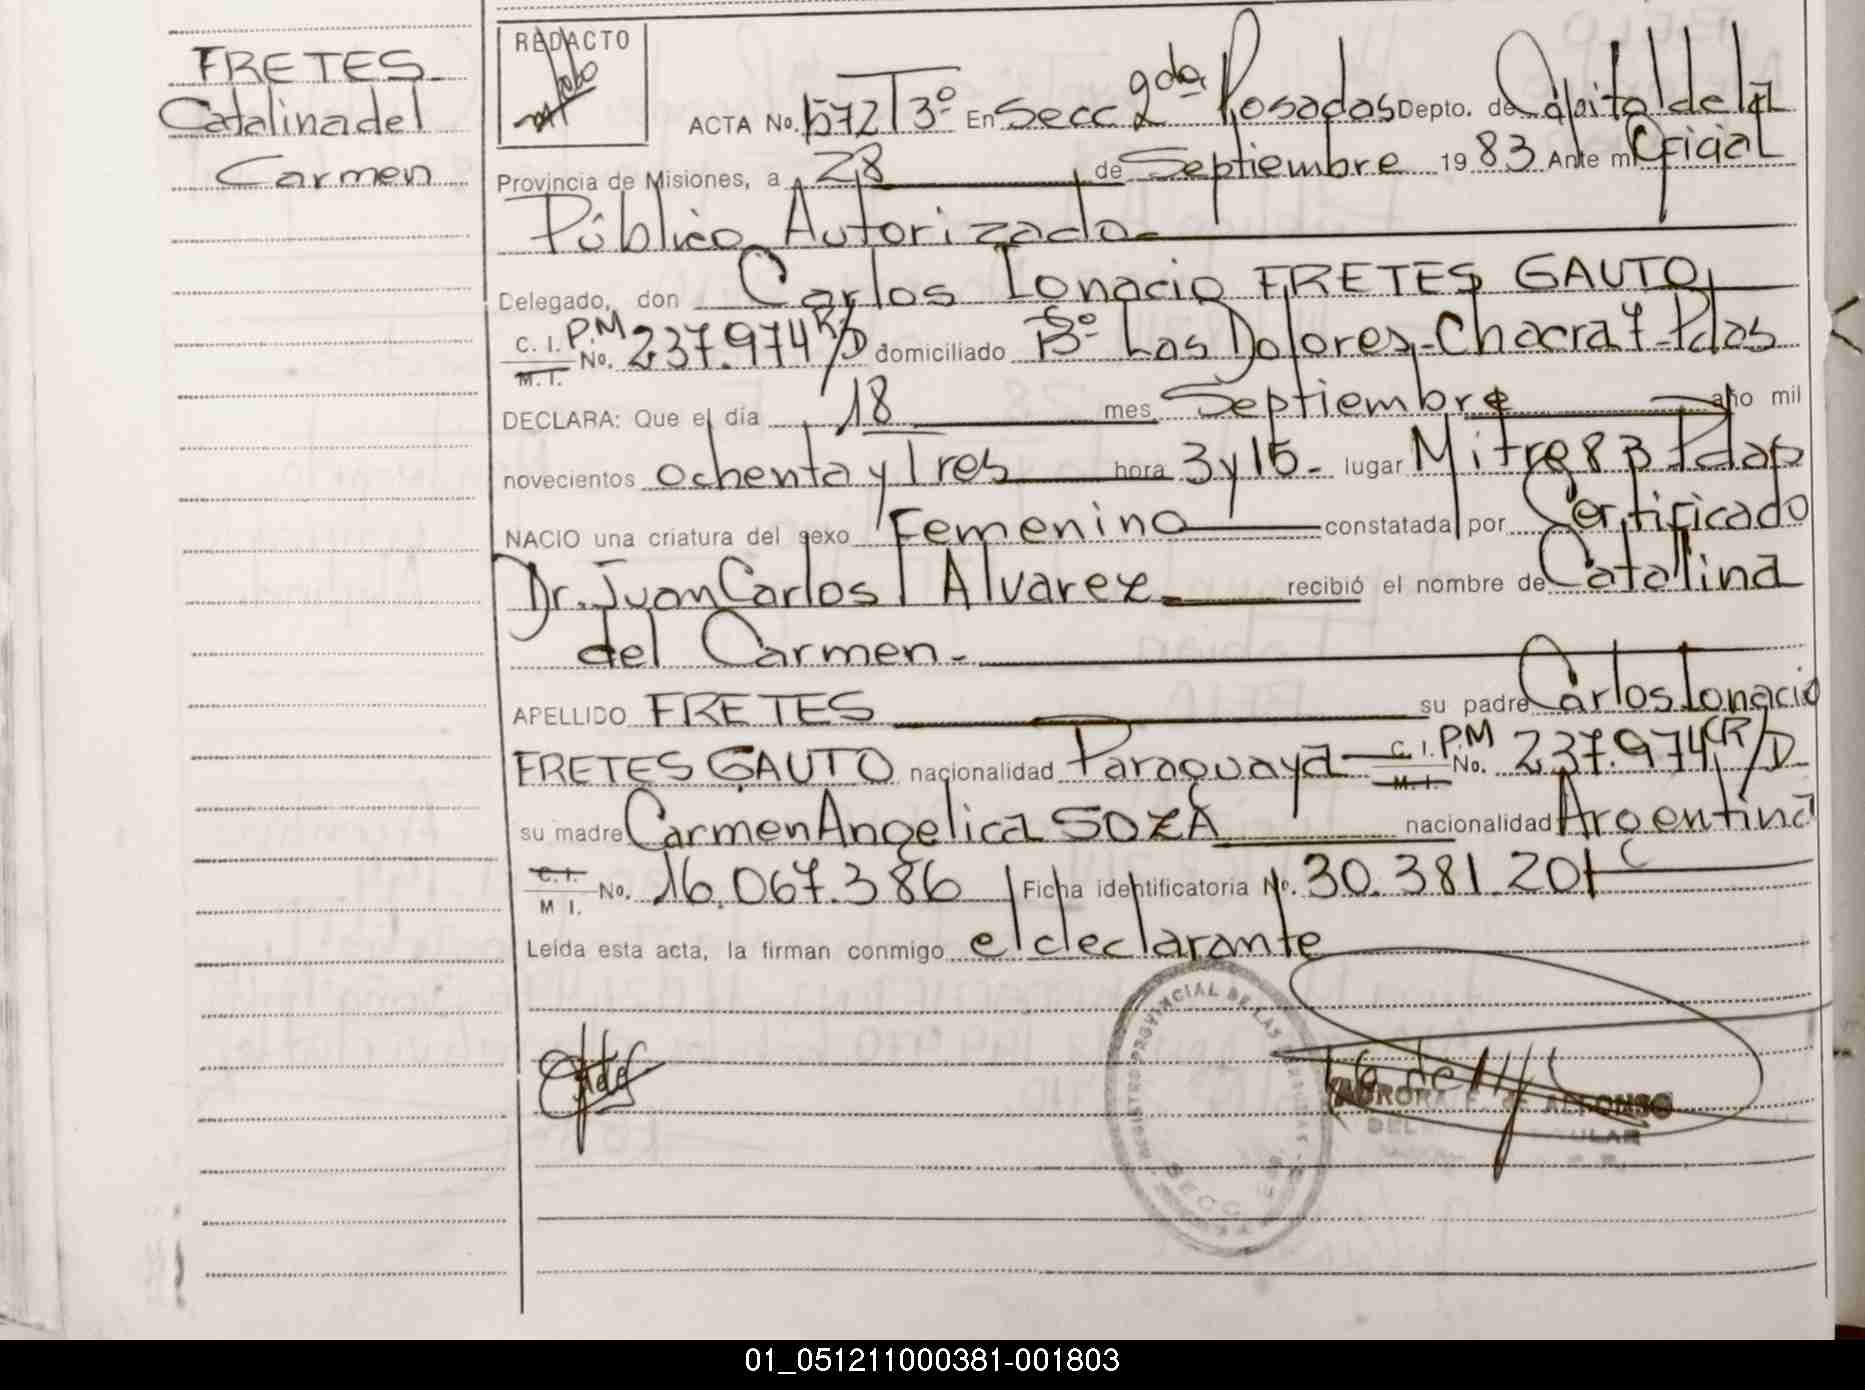 FRETES
Catalina del
Carmen
REDACTO
ACTA No. 1572 T 3º En Secc 2da Posadas Depto. de Capital de la
Provincia de Misiones, a 28 de Septiembre 1983 Ante mi Oficial
Público Autorizado.-
Delegado, don Carlos Ignacio FRETES GAUTO
C. I. P.M
M. I. No. 237.974 CR/D domiciliado Bº Las Dolores-Chacra 7-Pdas
DECLARA: Que el día 18 mes Septiembre año mil
novecientos ochenta y Tres hora 3 y 15- lugar Mitre 83 Pdas
NACIO una criatura del sexo Femenino constatada por Certificado
Dr. Juan Carlos Alvarez recibió el nombre de Catalina
del Carmen.-
APELLIDO FRETES su padre Carlos Ignacio
FRETES GAUTO nacionalidad Paraguaya C. I. P.M
M. I. No. 237.974 CR/D
su madre Carmen Angelica SOZA nacionalidad Argentina
C. I.
M I. No. 16.067.386 Ficha identificatoria No. 30.381.201
Leída esta acta, la firman conmigo el declarante
REGISTRO PROVINCIAL DE LAS PERSONAS
SECC
AURORA ALFONSO
01_051211000381-001803